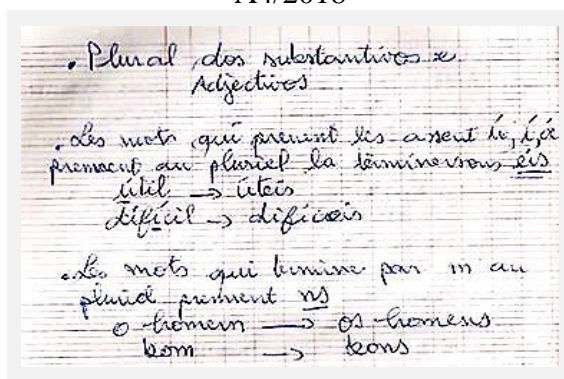 • Plural dos substantivos e
Adjectivos
• Les mots qui prenent les assent ú, í, é
prennent au pluriel la terminersons eis
útil → úteis
difícil → difíceis
• Les mots qui termine par m au
pluriel prennent ns
o homem → os homens
bom → bons